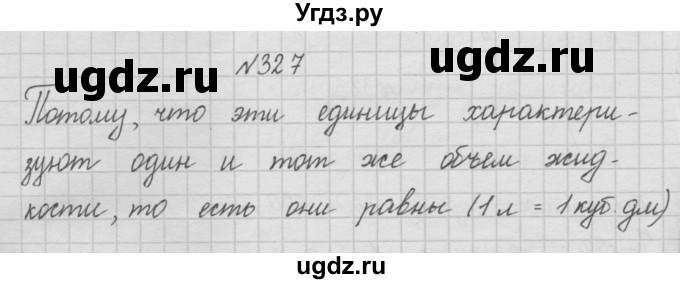 Угдз.ру
ugdz.ru
ugdz.ru
№327
Потому, что эти единицы характери-
зуют один и тот же объем жид-
кости, то есть они равны (1л = 1куб.дм)
ugdz.ru
ugdz.ru